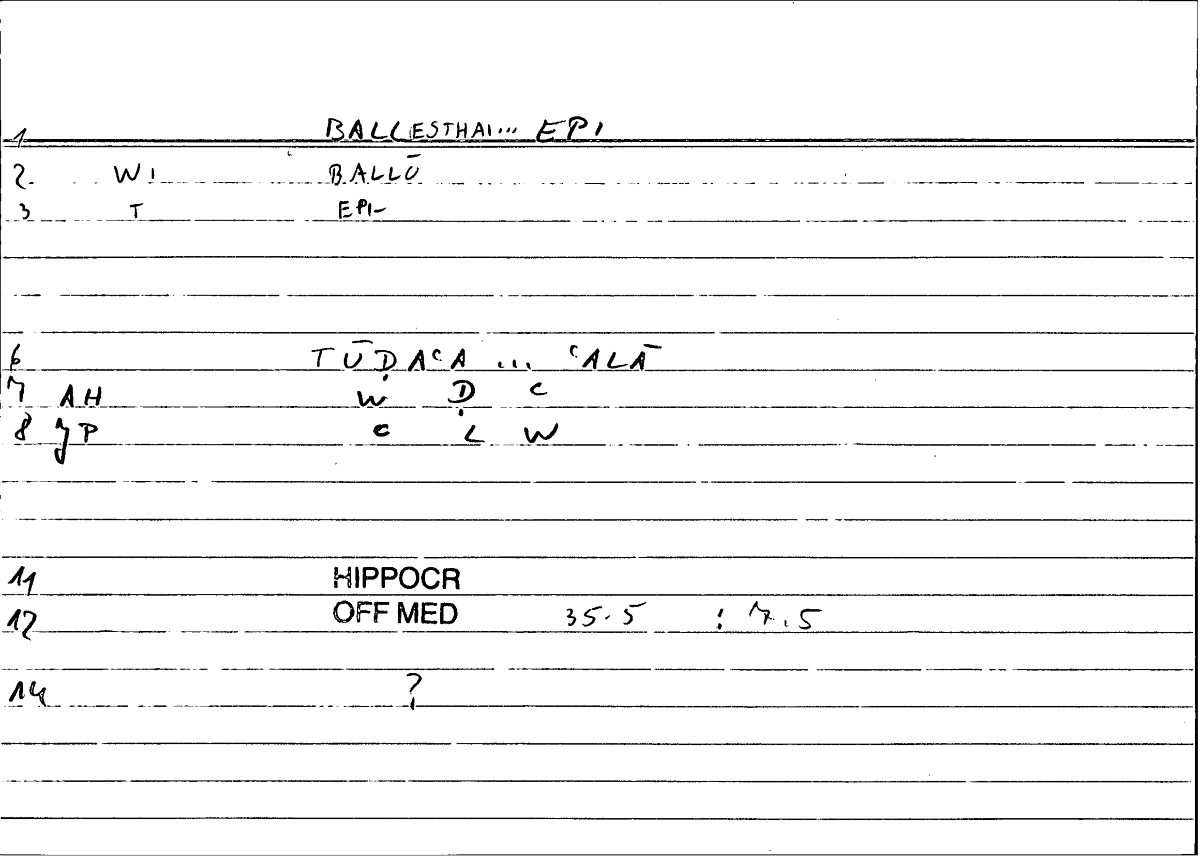 1 BALLESTHAI... EPI
2. WI BALLŌ
3 T EPI-
6 TŪḌAʿA ... ʿALĀ
7 AH W Ḍ ʿ
8 JP ʿ L W
11 HIPPOCR
12 OFF MED 35.5 : 7.5
14 ?